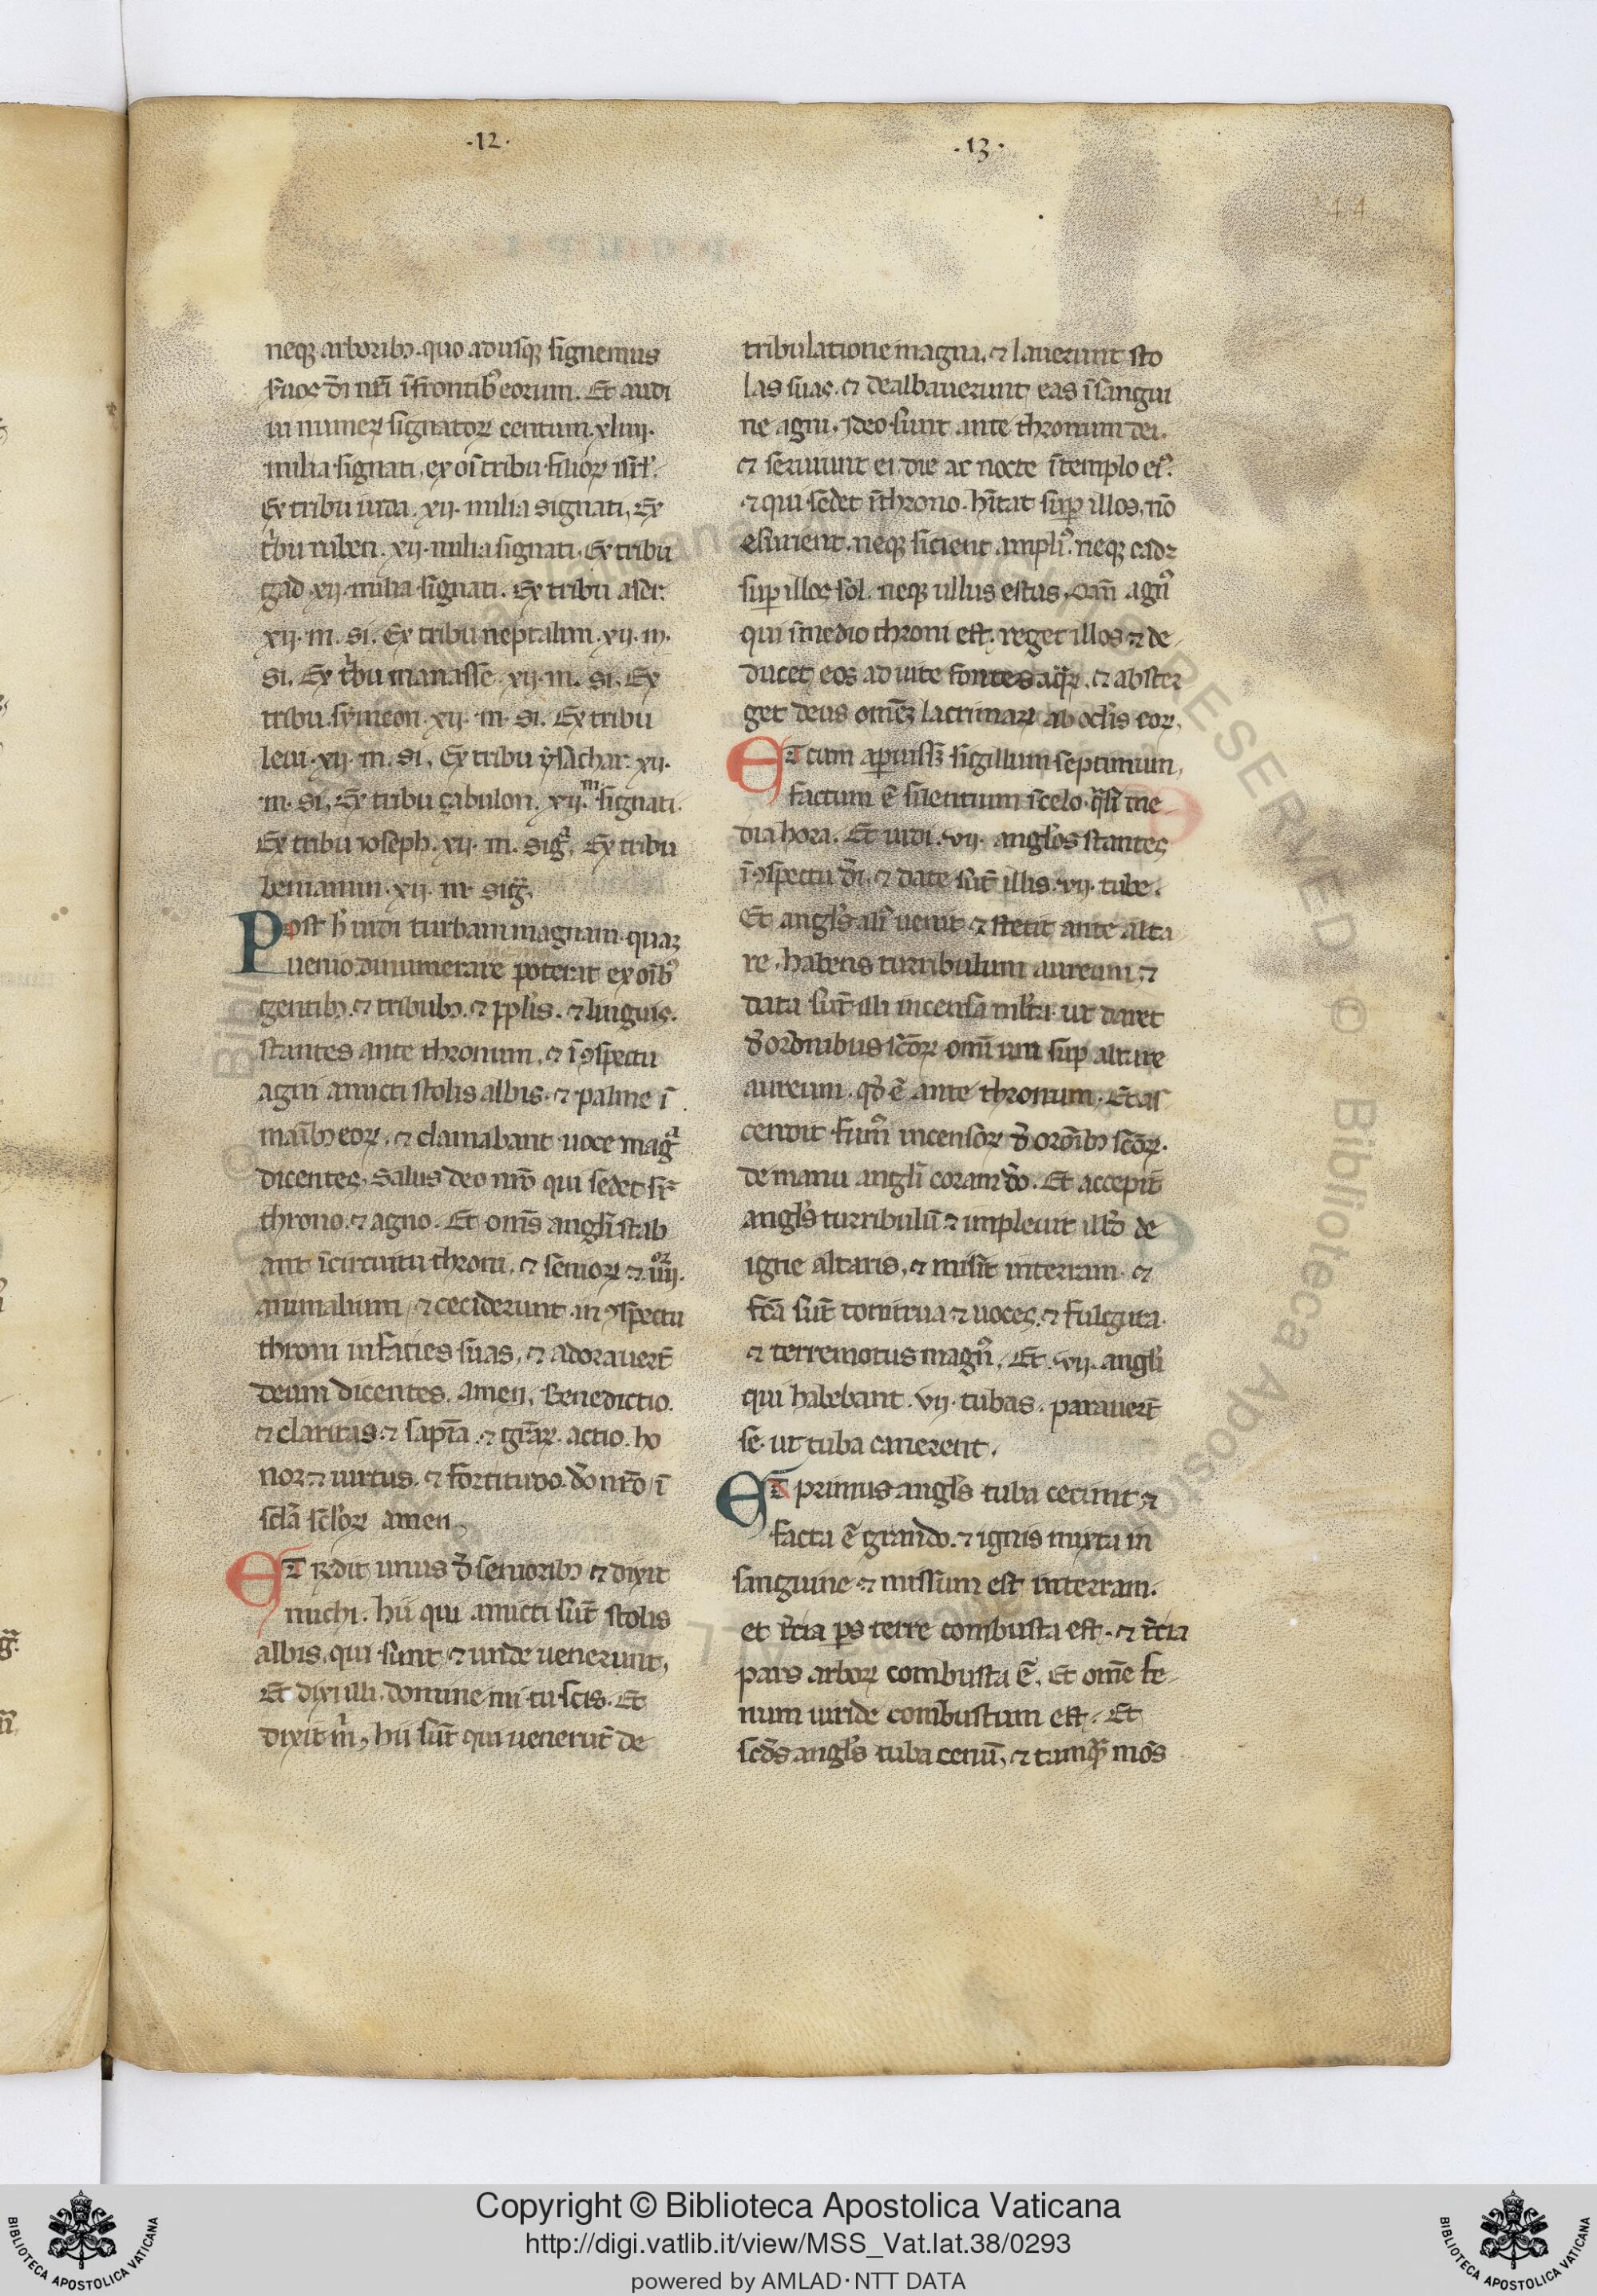 ·12·
·13·
144
neqꝫ arboribꝫ. quo adusqꝫ signemus
s̾uos d̄i nr̄i ī frontib᷒ eorum. Et audi
ui numeꝝ signatoꝝ centum. xliiii.
milia signati, ex oī tribu filioꝝ isrł.
Ex tribu iuda. xii. milia signati, Ex
tⁱbu ruben. xii. milia signati. Ex tribu
gad xii. milia signati. Ex tribu aser.
xii. m. si. Ex tribu neptalim. xii. m.
si. Ex tⁱbu manasse. xii. m. si. Ex
tribu symeon. xii. m. si. Ex tribu
leui. xii. m. si. Ex tribu ysachar. xii.
m. si. Ex tribu çabulon. xii. m signati.
Ex tribu ioseph. xii. m. sigᵃ. Ex tribu
beniamin. xii. m. sigᵃ.
Post h̄ uidi turbam magnam. quaꝫ
nemo dinumerare poterat ex oīb᷒
gentibꝫ. ⁊ tribubꝫ. ⁊ ppl̄is. ⁊ linguis.
stantes ante thronum. ⁊ ī ꝯspectu
agni amicti stolis albis. ⁊ palme ī
manibꝫ eoꝝ. ⁊ clamabant uoce magᵃ
dicentes. Salus deo nr̄o qui sedet sr̄
throno. ⁊ agno. Et om̄s angl̄i stab
ant ī circuitu throni. ⁊ senioꝝ ⁊ iiii.oꝝ
animalium. ⁊ ceciderunt in ꝯspectu
throni in facies suas, ⁊ adorauer̄t
deum dicentes. amen. Benedictio.
⁊ claritas. ⁊ sapīa. ⁊ gr̄aꝝ. actio. ho
nor. ⁊ uirtus. ⁊ fortitudo. d̄o nr̄o ī
scl̄a scl̄oꝝ amen.
ET r̄ndit unus d̄ senioribꝫ ⁊ dixit
michi. hii qui amicti sūt stolis
albis. qui sunt. ⁊ unde uenerunt,
Et dixi illi. domine mi tu scis. Et
dixit m̄, hii sūt qui uenerūt de
tribulatione magna. ⁊ lauerunt sto
las suas. ⁊ dealbauerunt eas ī sangui
ne agni. Ideo sunt ante thronum dei.
⁊ seruiunt ei die ac nocte ī templo ei᷒.
⁊ qui sedet ī throno. hītat sup̄ illos. nō
esurient. neqꝫ sicient ampli᷒. neqꝫ cadꝫ
sup̄ illos sol. neqꝫ ullus estus. qm̄ agn᷒
qui ī medio throni est. reget illos ⁊ de
ducet eos ad uite fontes aqᵃꝝ. ⁊ abster
get deus omēꝫ lacrimaꝫ ab ocl̄is eoꝝ.
ET cum aperuissꝫ sigillum septimum,
factum ē silentium ī celo. qᵃsi me
dia hora. Et uidi. vii. angl̄os stantes
ī ꝯspectu d̄i. ⁊ date sūt illis. vii. tube.
Et angl̄s ali᷒ uenit ⁊ stetit ante alta
re. habens turribulum aureum. ⁊
data sūt illi incensa ml̄ta. ut daret
d̄ or̄onibus sc̄oꝝ omīum sup̄ altare
aureum. qd̄ ē ante thronum. Et as
cendit fum᷒ incensoꝝ d̄ or̄onibꝫ sc̄oꝝ.
de manu angl̄i coram d̄o. Et accepit
angl̄s turribulū ⁊ impleuit illud de
igne altaris. ⁊ misit in terram. ⁊
fc̄a sūt tonitrua ⁊ uoces. ⁊ fulgura.
⁊ terremotus magn᷒. Et. vii. angl̄i
qui habebant. vii. tubas. parauer̄t
se. ut tuba canerent.
ET primus angl̄s tuba cecinit ⁊
facta ē grando. ⁊ ignis mixta in
sanguine ⁊ missum est in terram.
et t̄cia ps̄ terre combusta est. ⁊ t̄cia
pars arboꝝ combusta ē. Et om̄e fe
num uiride combustum est. Et
scd̄s angl̄s tuba cecinit, ⁊ tamqᵃ mōs
© Biblioteca Apostolica Vaticana. ALL RIGHTS RESERVED
Copyright © Biblioteca Apostolica Vaticana
http://digi.vatlib.it/view/MSS_Vat.lat.38/0293
powered by AMLAD·NTT DATA
BIBLIOTECA APOSTOLICA VATICANA
BIBLIOTECA APOSTOLICA VATICANA